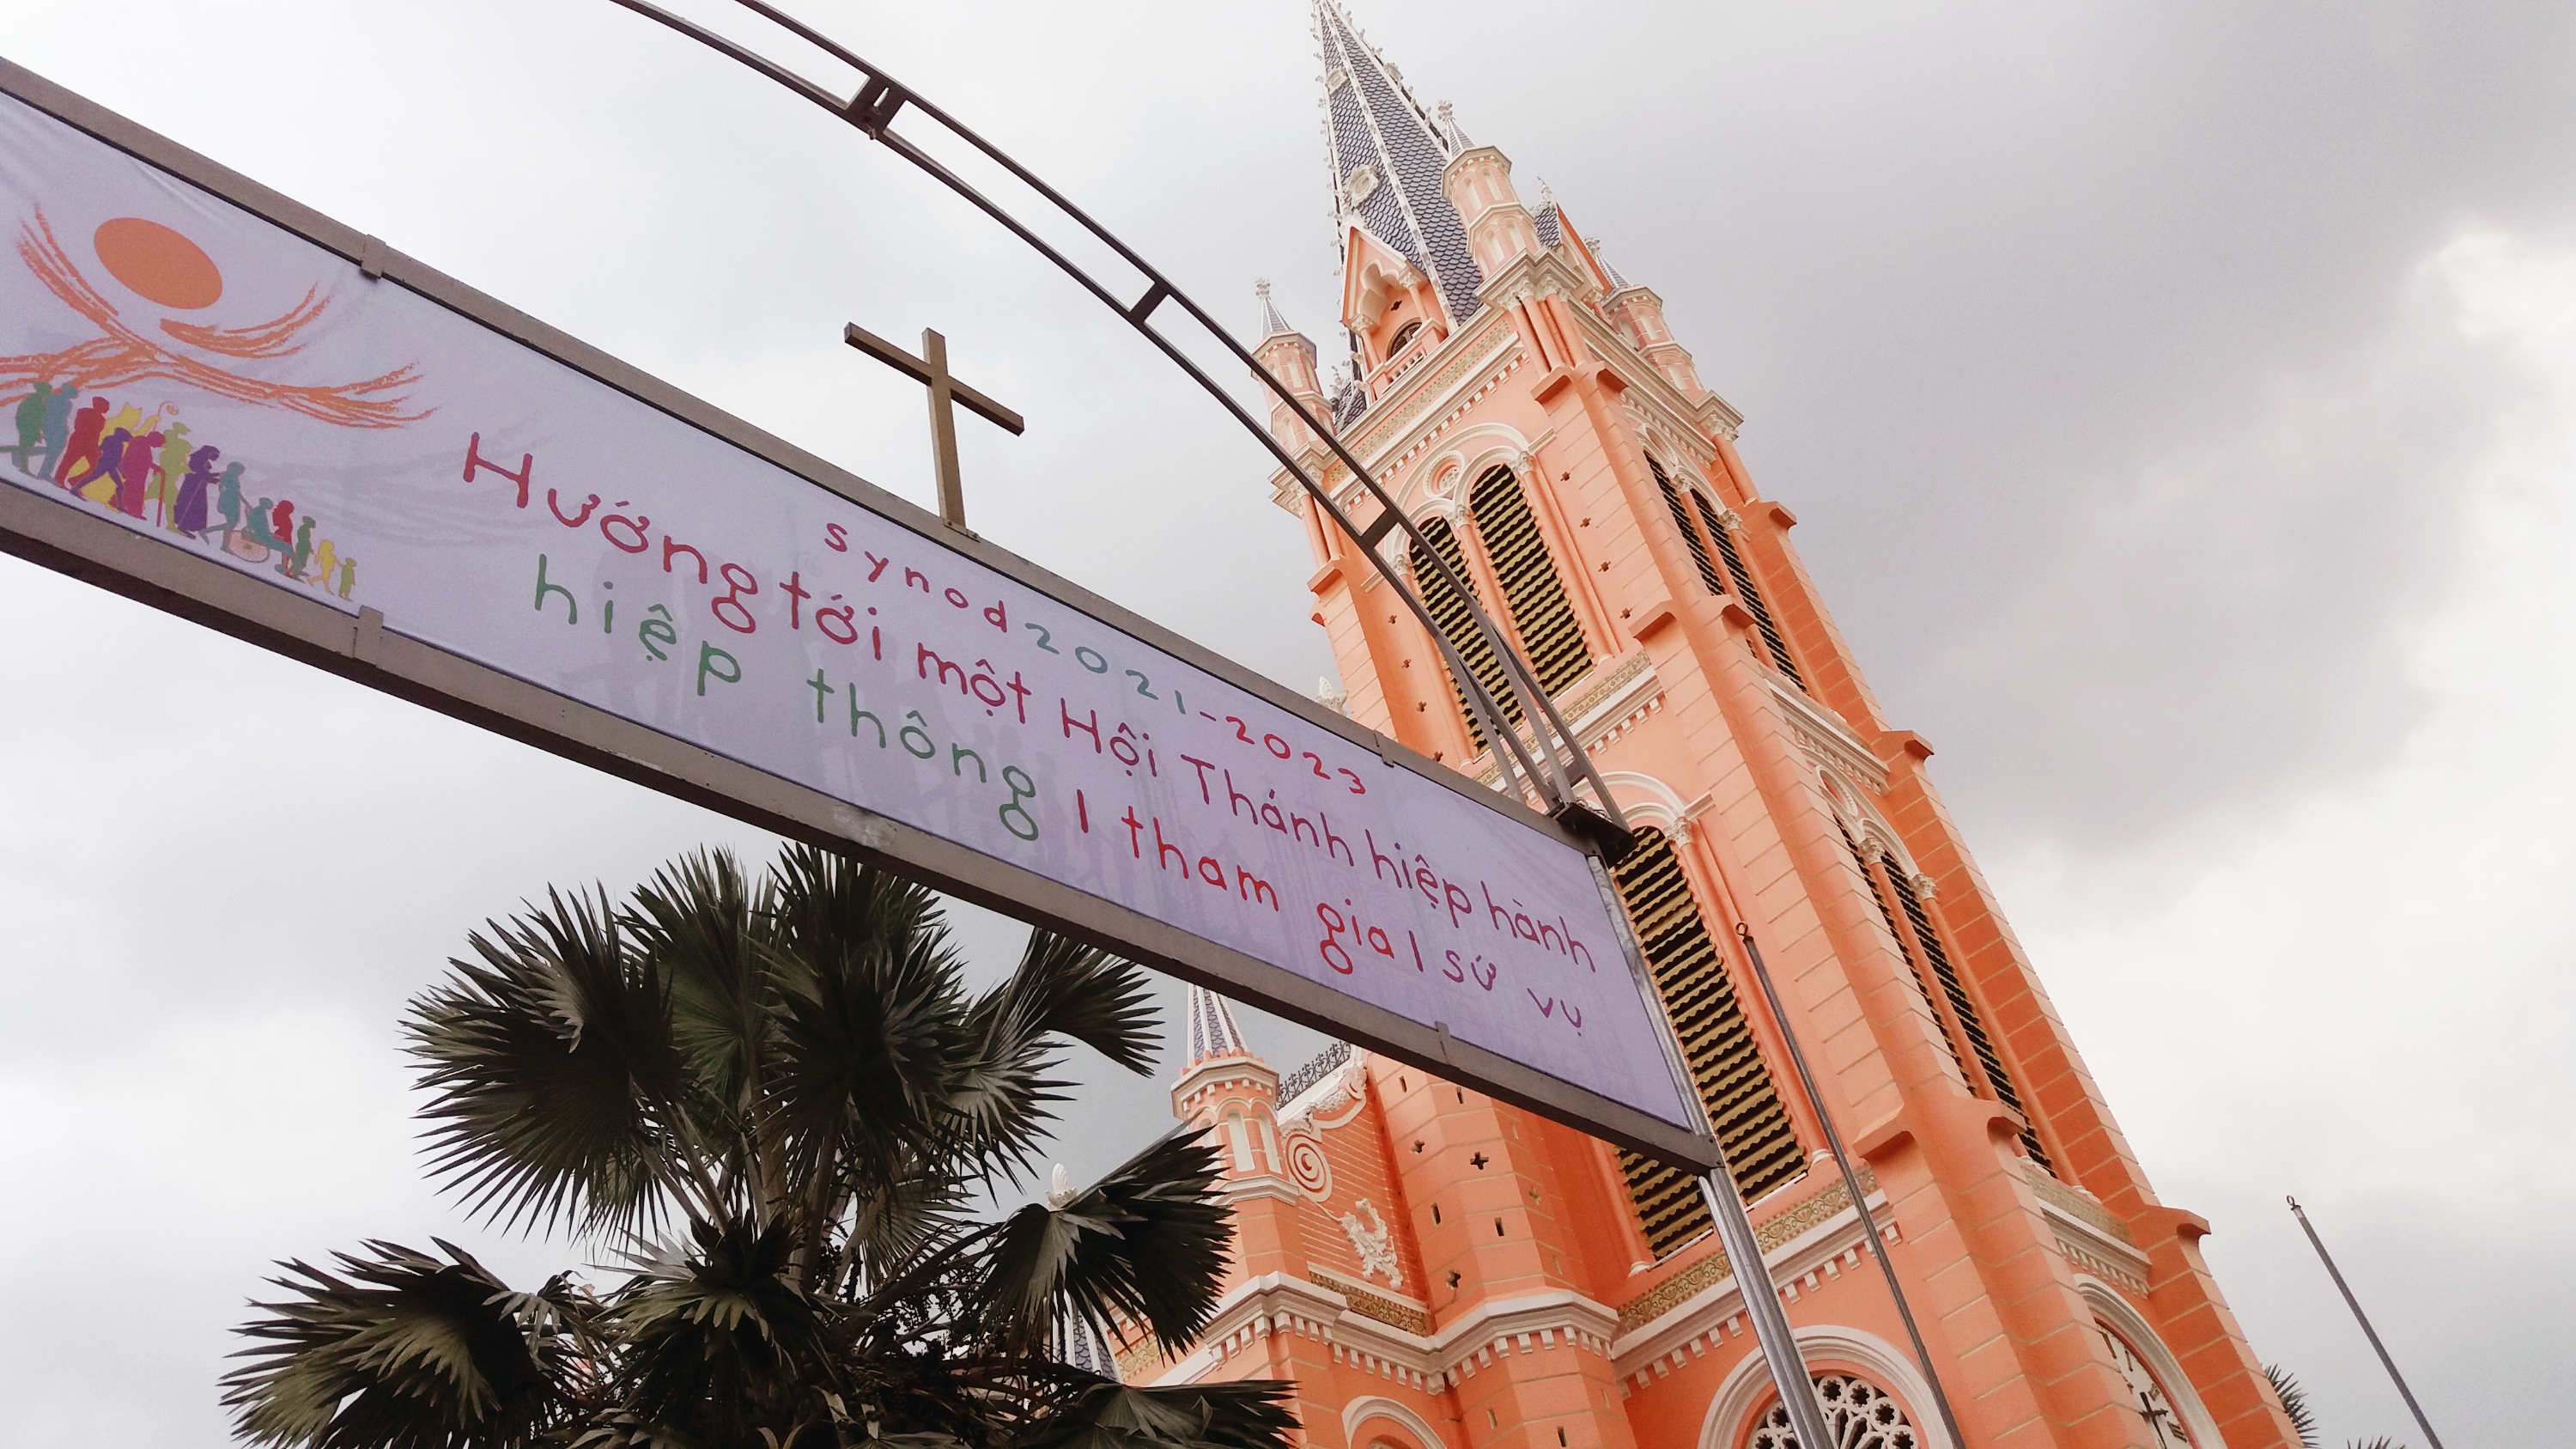 synod 2021-2023
Hướng tới một Hội Thánh hiệp hành
hiệp thông | tham gia | sứ vụ